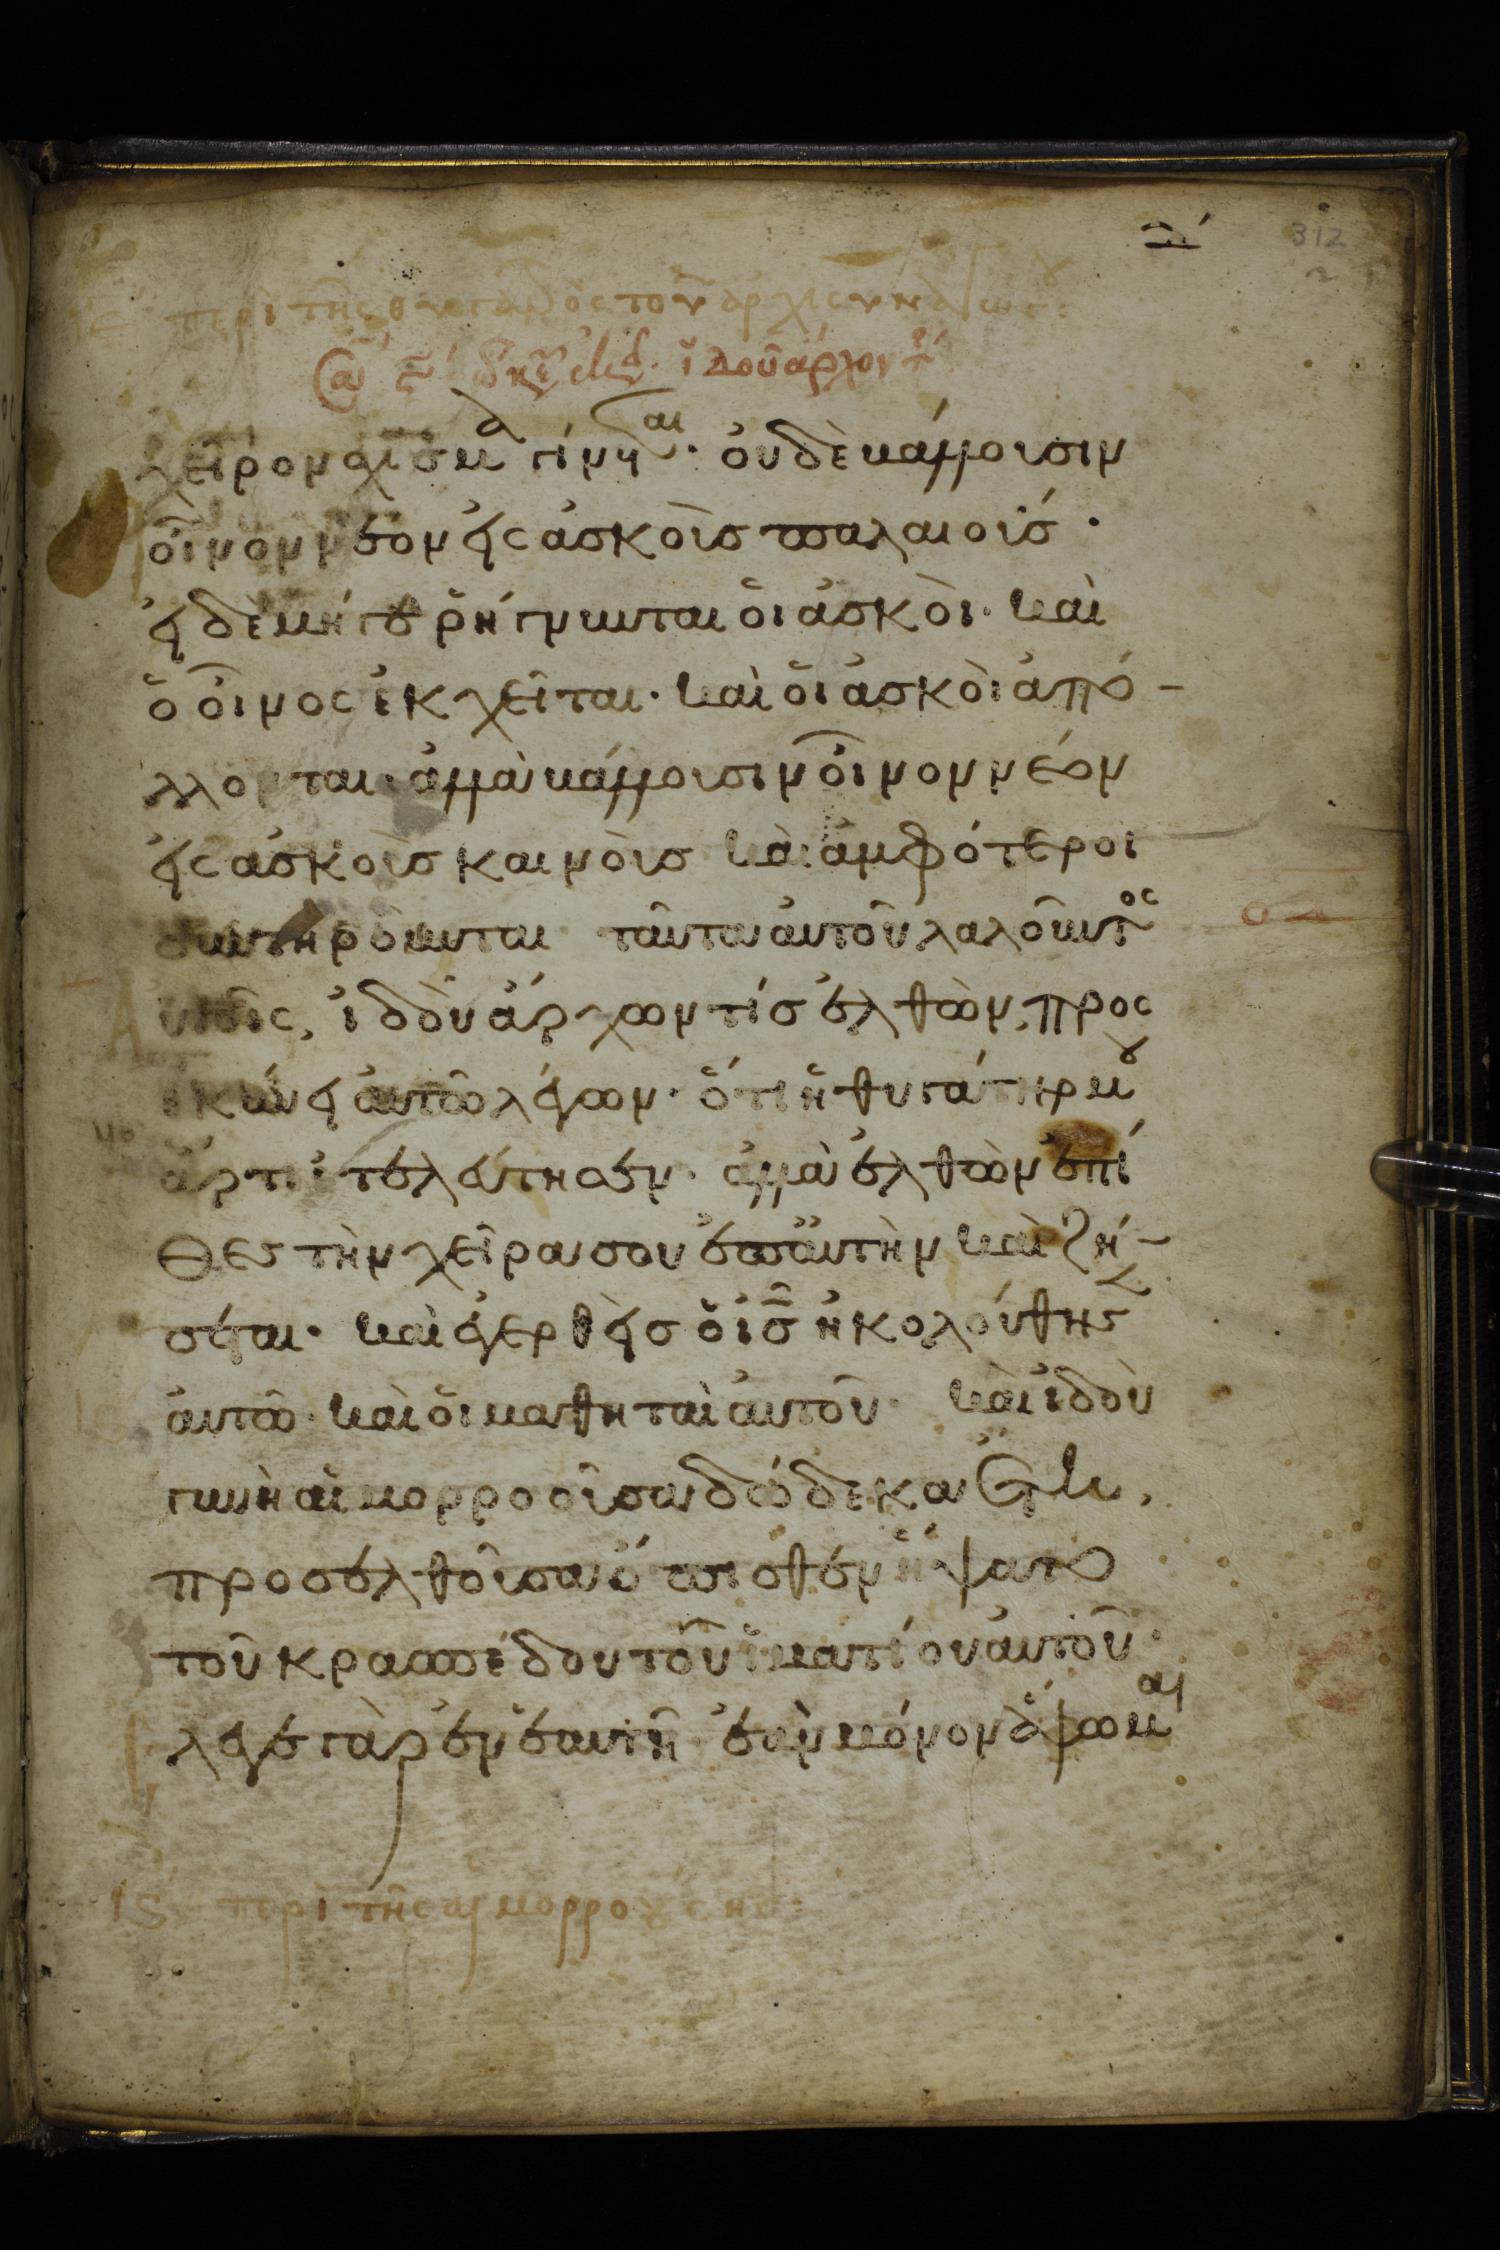 312
ιε περὶ τῆς θυγατρὸς τοῦ ἀρχισυναγώγου:
ἰδοὺ ἄρχοντ
χεῖρον σχίσμα γίνεται· οὐδὲ βάλλουσιν
οἶνον νέον εἰς ἀσκοὺς παλαιούς·
εἰ δὲ μήγε ῥήγνυνται οἱ ἀσκοί· καὶ
ὁ οἶνος ἐκχεῖται· καὶ οἱ ἀσκοὶ ἀπό-
λλονται· ἀλλὰ βάλλουσιν οἶνον νέον
εἰς ἀσκοὺς καινοὺς καὶ ἀμφότεροι
συντηροῦνται ταῦτα αὐτοῦ λαλοῦντος
αὐτοῖς, ἰδοὺ ἄρχων τίς ἐλθὼν, προσ
εκύνει αὐτῶ λέγων· ὅτι ἡ θυγάτηρ μου
ἄρτι ἐτελεύτησεν· ἀλλὰ ἐλθὼν ἐπί
θες τὴν χεῖρα σου ἐπ αὐτὴν καὶ ζή-
σεται· καὶ ἐγερθεὶς ὁ ις ἠκολούθησεν
αὐτῶ· καὶ οἱ μαθηταὶ αὐτοῦ· καὶ ἰδοὺ
γυνὴ αἱμορροοῦσα δώδεκα ἔτη,
προσελθοῦσα ὄπισθεν ἥψατο
τοῦ κρασπέδου τοῦ ἱματίου αὐτοῦ·
λεγε γὰρ ἐν ἑαυτῆ ἐὰν μόνον ἅψωμαι
ις περὶ τῆς αἱμορρούσης: